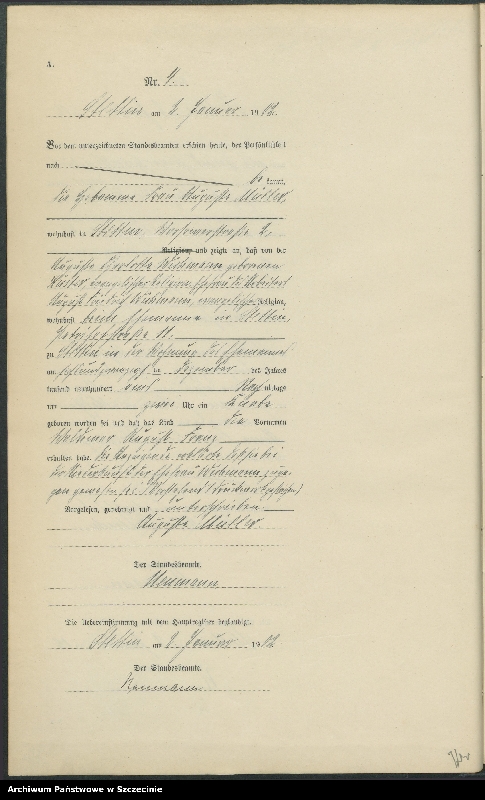 A.
Nr. 4.
Stettin am 2. Januar 1902.
Vor dem unterzeichneten Standesbeamten erschien heute, der Persönlichkeit
nach
be kannt,
die Hebamme Frau Auguste Müller,
wohnhaft in Stettin,
Religion, und zeigte an, daß von der
Auguste Charlotte Wichmann geborenen
evangelischer Religion, Ehefrau des Arbeiters
August Wichmann, evangelischer Religion,
wohnhaft bei ihrem Ehemanne in Stettin,
11,
zu Stettin in der Wohnung des Ehemannes
am Dezember des Jahres
tausend neunhundert eins Nachmittags
um zwei Uhr ein Knabe
geboren worden sei und daß das Kind die Vornamen
August Franz
erhalten habe. Die Anzeigende erklärte, daß sie bei
der Niederkunft der Ehefrau Wichmann zuge-
gen gewesen sei.
Vorgelesen, genehmigt und unterschrieben
Auguste Müller
Der Standesbeamte.
Die Uebereinstimmung mit dem Hauptregister beglaubigt.
Stettin am 2. Januar 1902.
Der Standesbeamte.
Archiwum Państwowe w Szczecinie